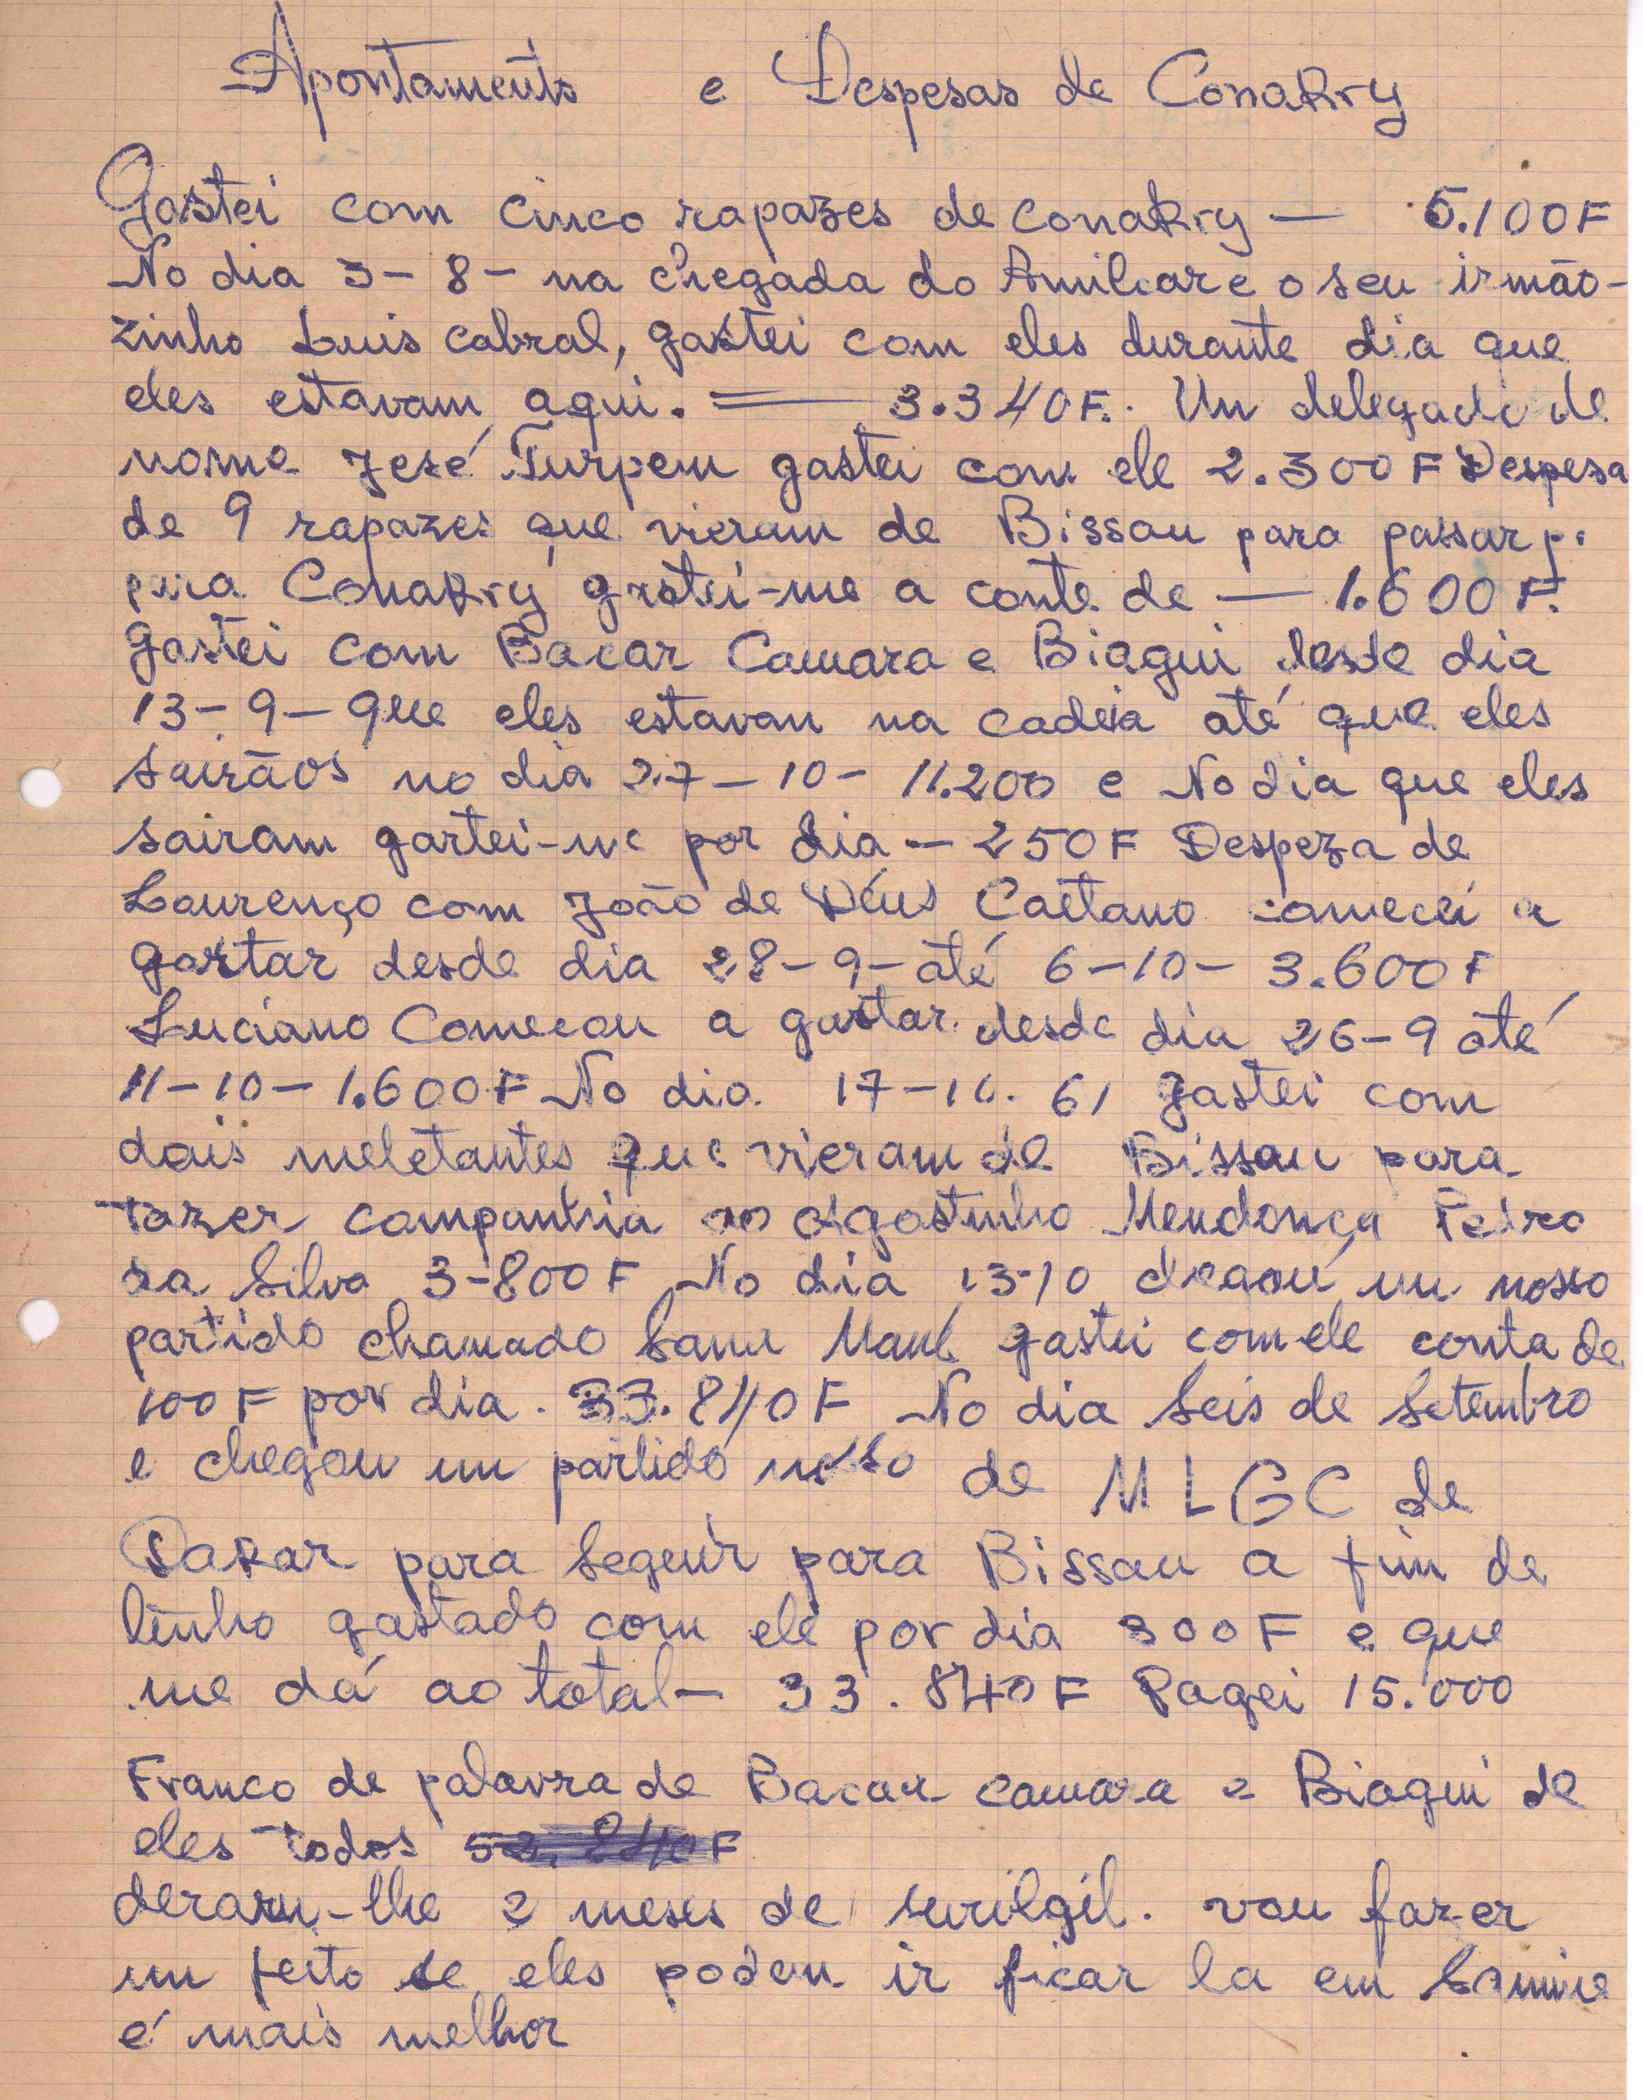 Apontamento e Despesas de Conakry
Gastei com cinco rapazes de conakry — 5.100F
No dia 3-8- na chegada do Amilcar e o seu irmão-
zinho Luis cabral, gastei com eles durante dia que
eles estavam aqui. = 3.340F. Um delegado de
nome José Turpem gastei com ele 2.300F Despesa
de 9 rapazes que vieram de Bissau para passar p.
para Conakry gastei-me a conta de — 1.600F.
gastei com Bacar Camara e Biagui desde dia
13-9- que eles estavam na cadeia até que eles
sairãos no dia 27-10- 11.200 e No dia que eles
sairam gartei-me por dia — 250F Despeza de
Lourenço com João de Déus Caetano comecei a
gastar desde dia 28-9- até 6-10- 3.600F
Luciano Comecou a gastar desde dia 26-9 até
11-10- 1.600F No dia 17-10. 61 gastei com
dois meletantes que vieram de Bissau para
fazer campanhia ao Agostinho Mendonça Pedro
da Silva 3-800F No dia 13-10 um nosso
partido chamado Sanu Mané gastei com ele conta de
100F por dia. 33.840F No dia Seis de Setembro
e chegou um partido nosso de MLGC de
Dakar para Seguir para Bissau a fim de
tinho gastado com ele por dia 300F e que
me dá ao total — 33.840F Pagei 15.000
Franco de palavra de Bacar camara e Biagui de
eles todos 52.840F
deram-lhe 2 meses de vou fazer
um feito se eles podem ir ficar la em Samine
é mais melhor